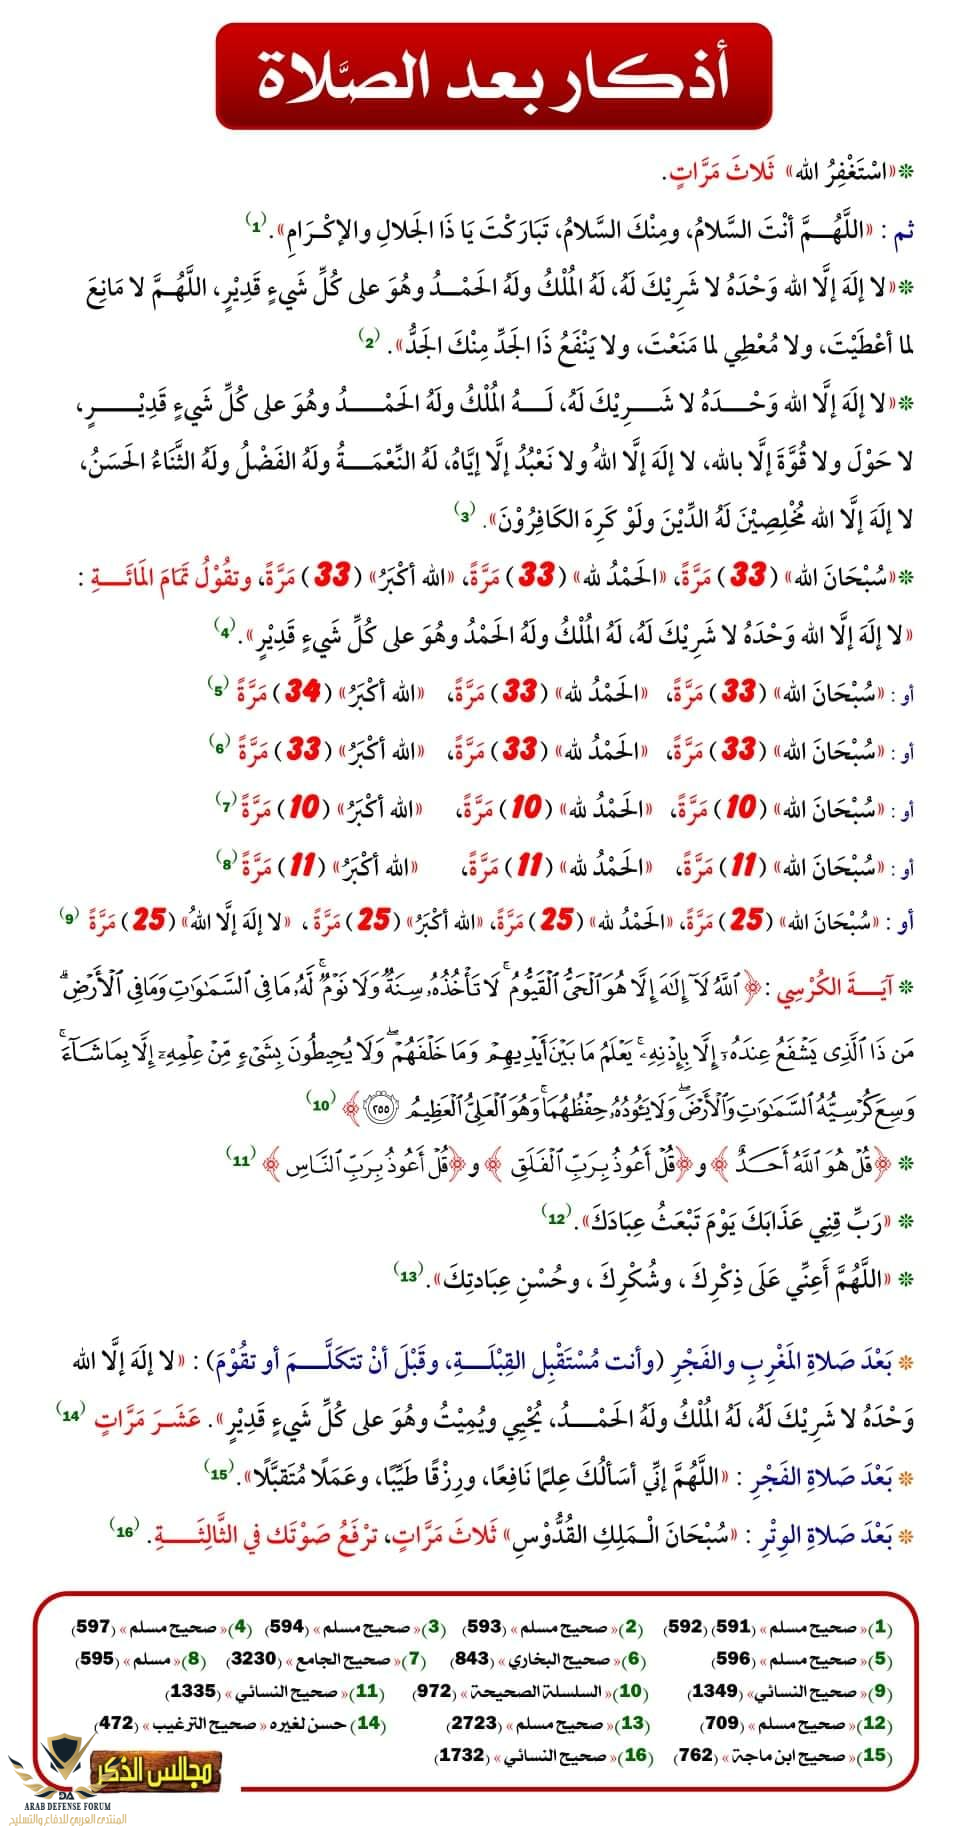 أذكار بعد الصَّلاة
❊«اسْتَغْفِرُ الله» ثَلاثَ مَرَّاتٍ.
ثم : «اللَّهُـمَّ أنْتَ السَّلامُ، ومِنْكَ السَّلامُ، تَبَارَكْتَ يَا ذَا الجَلالِ والإكْرَامِ». (1)
❊«لا إلَهَ إلَّا الله وَحْدَهُ لا شَرِيْكَ لَهُ، لَهُ المُلْكُ ولَهُ الحَمْـدُ وهُوَ على كُلِّ شَيءٍ قَدِيْرٍ، اللَّهُـمَّ لا مَانِعَ
لما أعْطَيْتَ، ولا مُعْطِي لما مَنَعْتَ، ولا يَنْفَعُ ذَا الجَدِّ مِنْكَ الجَدُّ». (2)
❊«لا إلَهَ إلَّا الله وَحْـدَهُ لا شَـرِيْكَ لَهُ، لَـهُ المُلْكُ ولَهُ الحَمْـدُ وهُوَ على كُلِّ شَيءٍ قَدِيْـرٍ،
لا حَوْلَ ولا قُوَّةَ إلَّا بالله، لا إلَهَ إلَّا اللهُ ولا نَعْبُدُ إلَّا إيَّاهُ، لَهُ النِّعْمَـةُ ولَهُ الفَضْلُ ولَهُ الثَّنَاءُ الحَسَنُ،
لا إلَهَ إلَّا الله مُخْلِصِيْنَ لَهُ الدِّيْنَ ولَوْ كَرِهَ الكَافِرُوْنَ». (3)
❊«سُبْحَانَ الله» (33) مَرَّةً، «الحَمْدُ لله» (33) مَرَّةً، «الله أكْبَرُ» (33) مَرَّةً، وتقُوْلُ تَمَامَ المَائَـةِ :
«لا إلَهَ إلَّا الله وَحْدَهُ لا شَرِيْكَ لَهُ، لَهُ المُلْكُ ولَهُ الحَمْدُ وهُوَ على كُلِّ شَيءٍ قَدِيْرٍ». (4)
أو : «سُبْحَانَ الله» (33) مَرَّةً، «الحَمْدُ لله» (33) مَرَّةً، «الله أكْبَرُ» (34) مَرَّةً (5)
أو : «سُبْحَانَ الله» (33) مَرَّةً، «الحَمْدُ لله» (33) مَرَّةً، «الله أكْبَرُ» (33) مَرَّةً (6)
أو : «سُبْحَانَ الله» (10) مَرَّةً، «الحَمْدُ لله» (10) مَرَّةً، «الله أكْبَرُ» (10) مَرَّةً (7)
أو : «سُبْحَانَ الله» (11) مَرَّةً، «الحَمْدُ لله» (11) مَرَّةً، «الله أكْبَرُ» (11) مَرَّةً (8)
أو : «سُبْحَانَ الله» (25) مَرَّةً، «الحَمْدُ لله» (25) مَرَّةً، «الله أكْبَرُ» (25) مَرَّةً ، «لا إلَهَ إلَّا اللهُ» (25) مَرَّةً (9)
❊ آيَـةَ الكُرْسِي : ﴿ ٱللَّهُ لَآ إِلَٰهَ إِلَّا هُوَ ٱلْحَيُّ ٱلْقَيُّومُ ۚ لَا تَأْخُذُهُۥ سِنَةٌ وَلَا نَوْمٌ ۚ لَّهُۥ مَا فِى ٱلسَّمَٰوَٰتِ وَمَا فِى ٱلْأَرْضِ ۗ
مَن ذَا ٱلَّذِى يَشْفَعُ عِندَهُۥٓ إِلَّا بِإِذْنِهِۦ ۚ يَعْلَمُ مَا بَيْنَ أَيْدِيهِمْ وَمَا خَلْفَهُمْ ۖ وَلَا يُحِيطُونَ بِشَىْءٍ مِّنْ عِلْمِهِۦٓ إِلَّا بِمَا شَآءَ ۚ
وَسِعَ كُرْسِيُّهُ ٱلسَّمَٰوَٰتِ وَٱلْأَرْضَ ۖ وَلَا يَـُٔودُهُۥ حِفْظُهُمَا ۚ وَهُوَ ٱلْعَلِىُّ ٱلْعَظِيمُ ٢٥٥ ﴾ (10)
❊ ﴿ قُلْ هُوَ ٱللَّهُ أَحَدٌ ﴾ و﴿ قُلْ أَعُوذُ بِرَبِّ ٱلْفَلَقِ ﴾ و﴿ قُلْ أَعُوذُ بِرَبِّ ٱلنَّاسِ ﴾ (11)
❊ «رَبِّ قِنِي عَذَابَكَ يَوْمَ تَبْعَثُ عِبَادَكَ». (12)
❊ «اللَّهُمَّ أَعِنِّي عَلَى ذِكْرِكَ ، وشُكْرِكَ ، وحُسْنِ عِبَادتِكَ». (13)
❊ بَعْدَ صَلاةِ المَغْرِبِ والفَجْرِ (وأنت مُسْتَقْبِل القِبْلَـةِ، وقَبْلَ أنْ تتَكَلَّـمَ أو تقُوْمَ) : «لا إلَهَ إلَّا الله
وَحْدَهُ لا شَرِيْكَ لَهُ، لَهُ المُلْكُ ولَهُ الحَمْـدُ، يُحْيِي ويُمِيْتُ وهُوَ على كُلِّ شَيءٍ قَدِيْرٍ». عَشَـرَ مَرَّاتٍ (14)
❊ بَعْدَ صَلاةِ الفَجْرِ : «اللَّهُمَّ إنِّي أسَألُكَ عِلمًا نَافِعًا، ورِزْقًا طَيِّبًا، وعَمَلًا مُتَقبَّلًا». (15)
❊ بَعْدَ صَلاةِ الوِتْرِ : «سُبْحَانَ الْـمَلِكِ القُدُّوْسِ» ثَلاثَ مَرَّاتٍ، ترْفَعُ صَوْتَك في الثَّالِثَـةِ. (16)
(1)« صحيح مسلم » (591) (592) (2)« صحيح مسلم » (593) (3)« صحيح مسلم » (594) (4)« صحيح مسلم » (597)
(5)« صحيح مسلم » (596) (6)« صحيح البخاري » (843) (7)« صحيح الجامع » (3230) (8)« مسلم » (595)
(9)« صحيح النسائي» (1349) (10)« السلسلة الصحيحة » (972) (11)« صحيح النسائي » (1335)
(12)« صحيح مسلم » (709) (13)« صحيح مسلم » (2723) (14) حسن لغيره « صحيح الترغيب » (472)
(15)« صحيح ابن ماجة » (762) (16)« صحيح النسائي » (1732)
مجالس الذكر
ARAB DEFENSE FORUM
المنتدى العربي للدفاع والتسليح